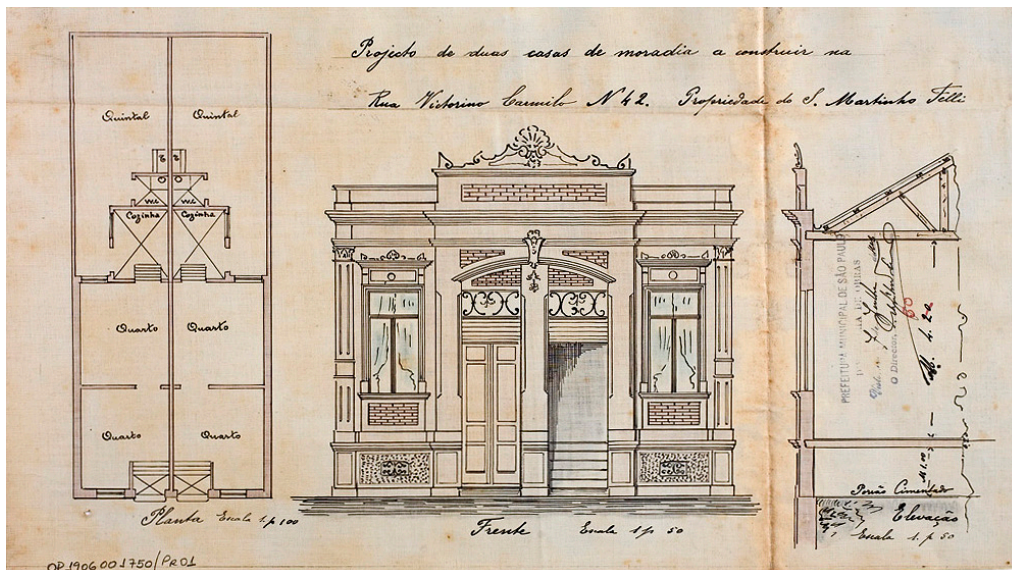 Projecto de duas casas de moradia a construir na
Rua Victorino Carmilo N 42. Propriedade do S. Martinho Felli
Quintal Quintal
W.C. W.C.
Cozinha Cozinha
Quarto Quarto
Quarto Quarto
Planta Escala 1. p 100
Frente Escala 1 p 50
PREFEITURA MUNICIPAL DE SÃO PAULO
OBRAS
O Director
M. 4.20
M 1.00
Porão Cimentado
Elevação
Escala 1. p 50
OP1906001750/PR01